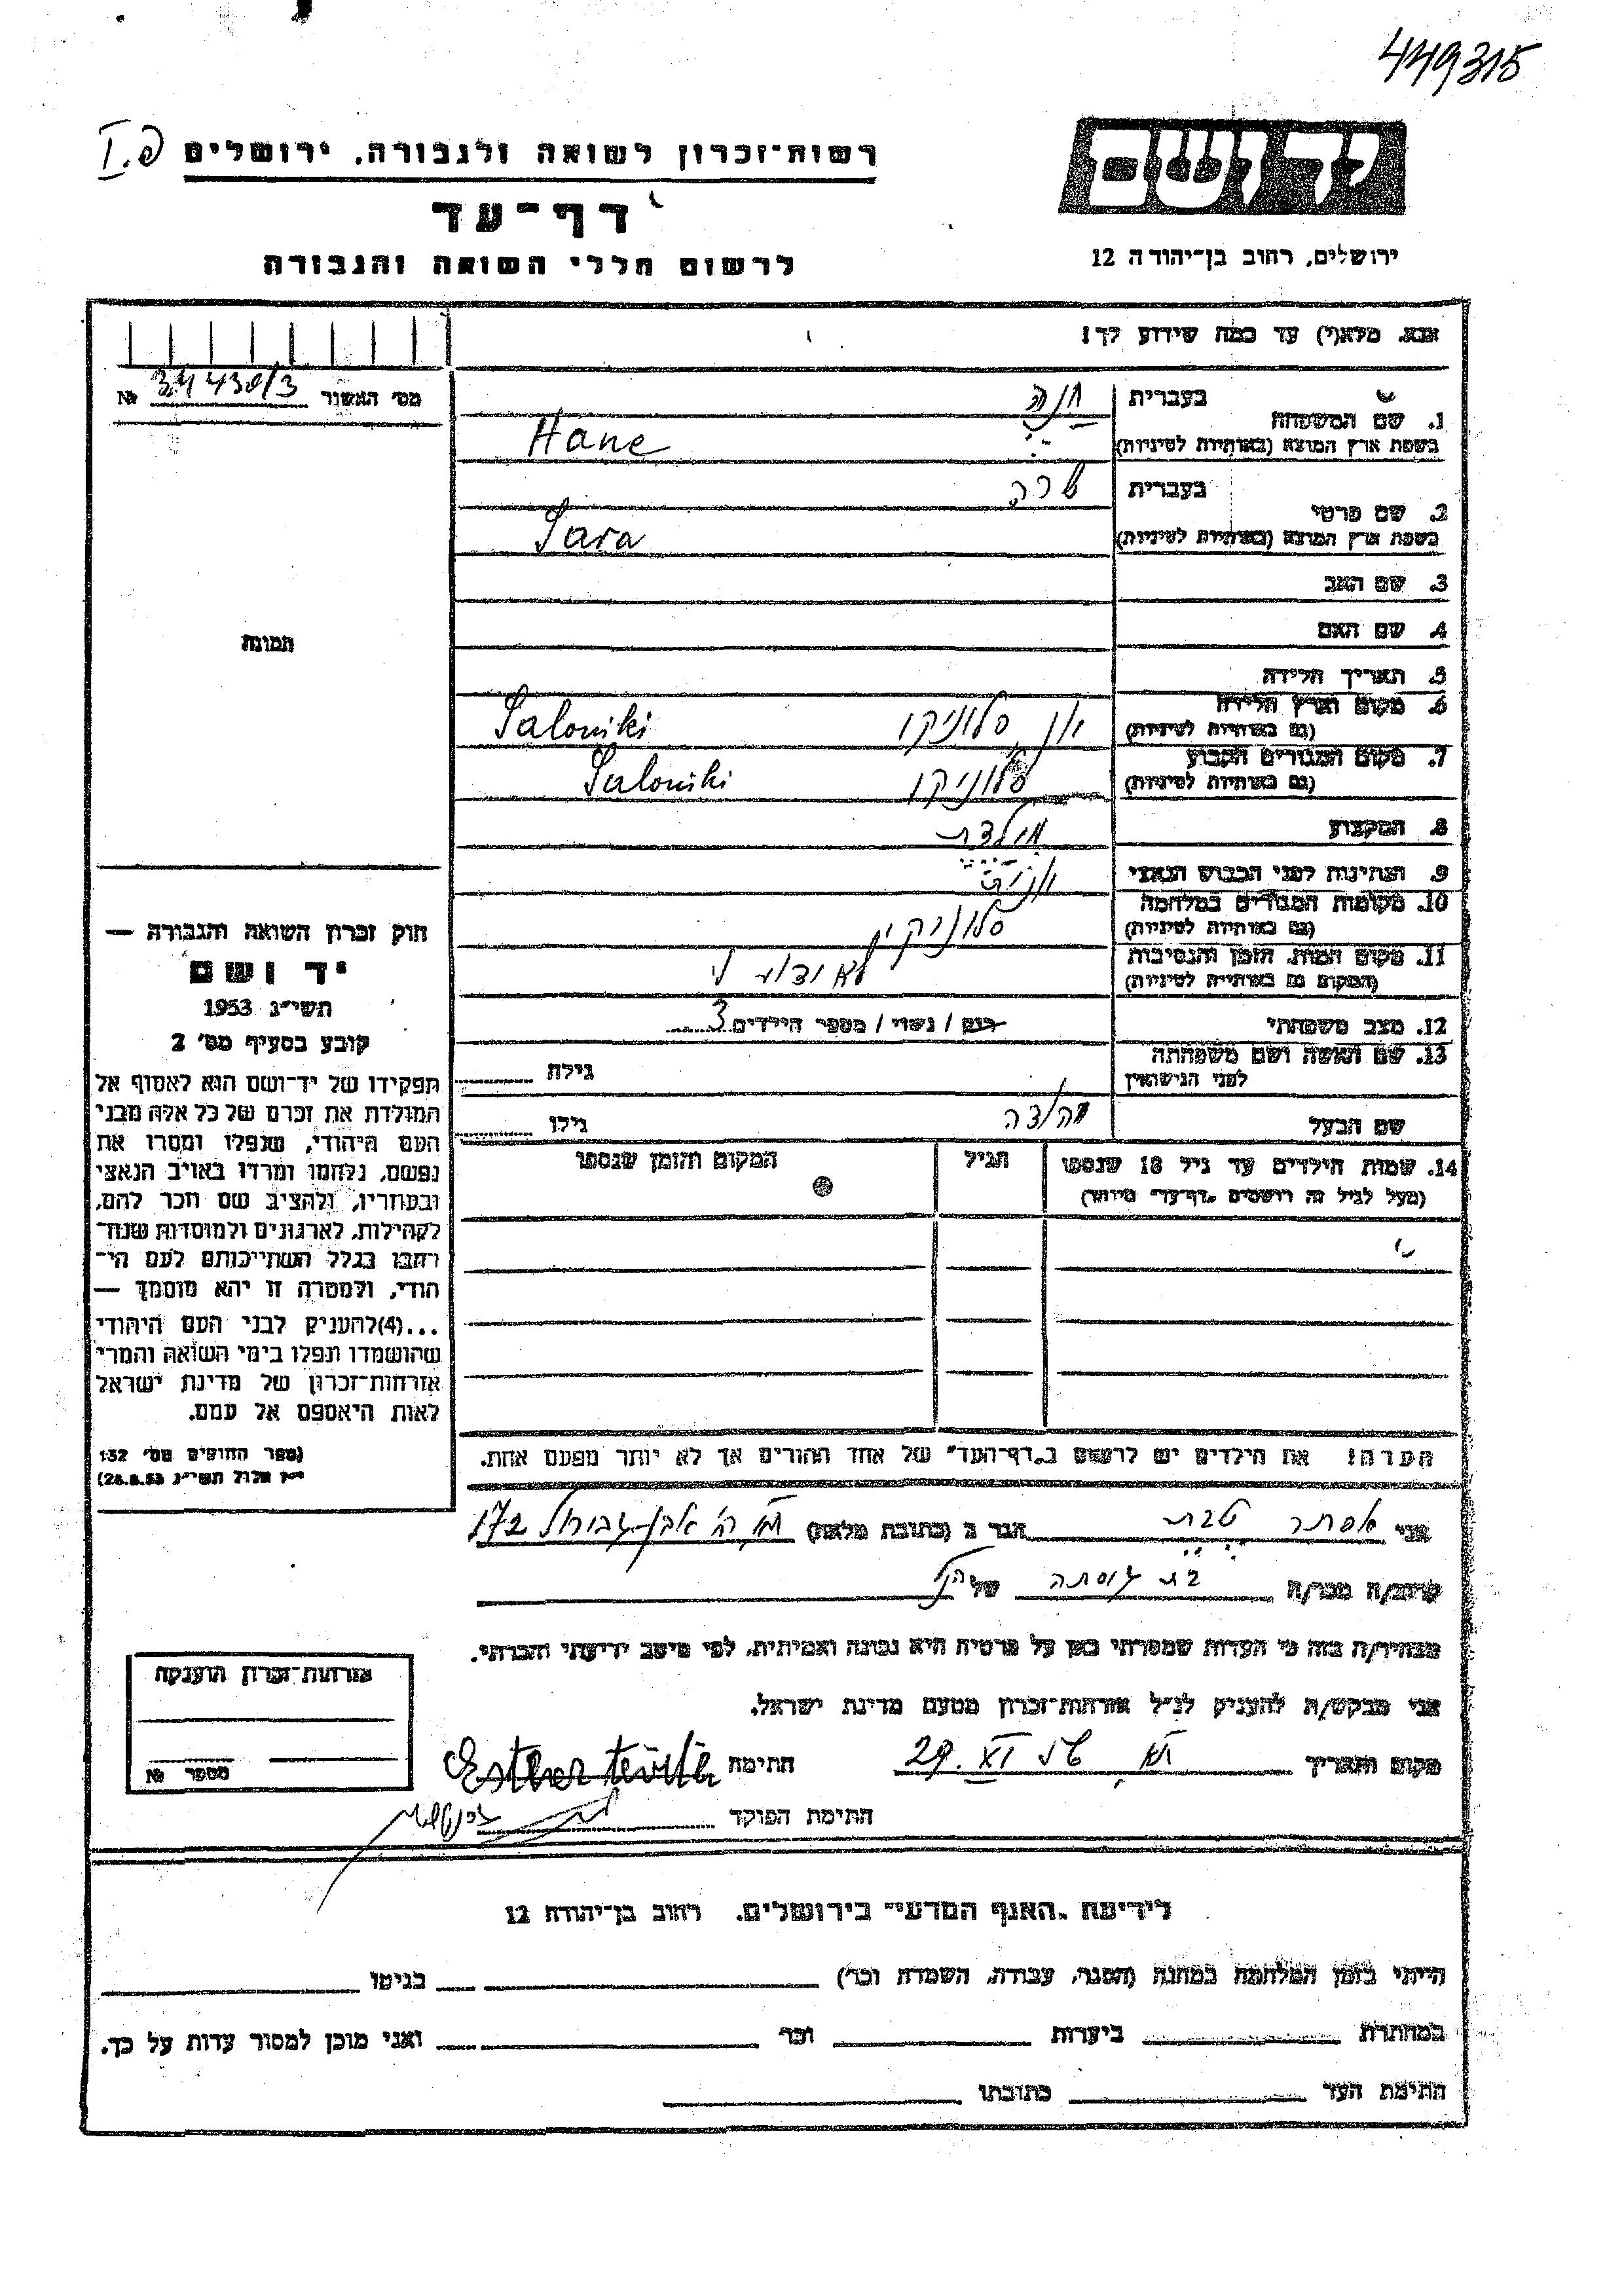 449315
רשות־זכרון לשואה ולגבורה, ירושלים
דף־עד
לרשום חללי השואה והגבורה
ירושלים, רחוב בן־יהודה 12
אנא, מלא(י) עד כמה שידוע לך!
מס׳ האשור № 34430/3
1. שם המשפחה
בעברית חנה
בשפת ארץ המוצא (באותיות לטיניות) Hane
2. שם פרטי
בעברית שרה
בשפת ארץ המוצא (באותיות לטיניות) Sara
3. שם האב
4. שם האם
תמונה
5. תאריך הלידה
6. מקום וארץ הלידה
(גם באותיות לטיניות) יון סלוניקו Saloniki
7. מקום המגורים הקבוע
(גם באותיות לטיניות) סלוניקו Saloniki
8. המקצוע
9. הנתינות לפני הכבוש הנאצי
10. מקומות המגורים במלחמה
(גם באותיות לטיניות) סלוניקי
11. מקום המות, הזמן והנסיבות
(המקום גם באותיות לטיניות) לא ידוע לי
12. מצב משפחתי רוק / נשוי / מספר הילדים 3
13. שם האשה ושם משפחתה
לפני הנישואין גילה
שם הבעל יהודה גילו
14. שמות הילדים עד גיל 18 שנספו הגיל המקום והזמן שנספו
(מעל לגיל זה רושמים „דף־עד״ מיוחד)
חוק זכרון השואה והגבורה —
יד ושם
תשי״ג 1953
קובע בסעיף מס׳ 2
תפקידו של יד־ושם הוא לאסוף אל
המולדת את זכרם של כל אלה מבני
העם היהודי, שנפלו ומסרו את
נפשם, נלחמו ומרדו באויב הנאצי
ובעוזריו, ולהציב שם וזכר להם,
לקהילות, לארגונים ולמוסדות שנח־
רבו בגלל השתייכותם לעם הי־
הודי, ולמטרה זו יהא מוסמך —
...(4)להעניק לבני העם היהודי
שהושמדו ונפלו בימי השואה והמרי
אזרחות־זכרון של מדינת ישראל
לאות היאספם אל עמם.
(ספר החוקים מס׳ 132
י״ז אלול תשי״ג 28.8.53)
הערה! את הילדים יש לרשום ב„דף־העד״ של אחד ההורים אך לא יותר מפעם אחת.
אני אסתר הגר ב (כתובת מלאה) ת״א רח׳ אבן־גבירול 172
קרוב/ה מכר/ה של
מצהיר/ה בזה כי העדות שמסרתי כאן על פרטיה היא נכונה ואמיתית, לפי מיטב ידיעתי והכרתי.
אני מבקש/ת להעניק לנ״ל אזרחות־זכרון מטעם מדינת ישראל.
מקום ותאריך ת״א 29.XI חתימה Esther
חתימת הפוקד
אזרחות־זכרון הוענקה
מספר №
לידיעת „האגף המדעי״ בירושלים, רחוב בן־יהודה 12
הייתי בזמן המלחמה במחנה (הסגר, עבודה, השמדה וכו׳) בגיטו
במחתרת ביערות וכו׳ ואני מוכן למסור עדות על כך.
חתימת העד כתובתו